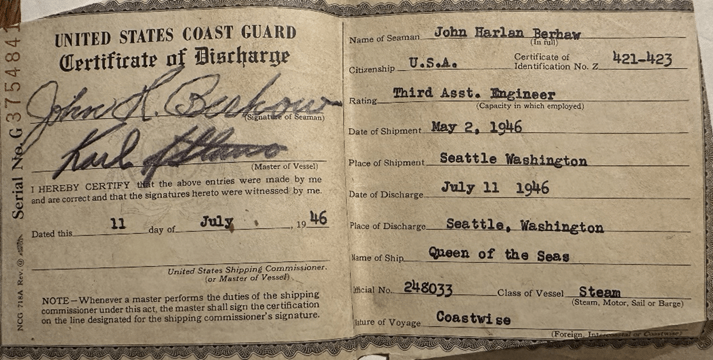 Serial No. G 375484
NCG 718A Rev.
UNITED STATES COAST GUARD
Certificate of Discharge
John H. Berhow
(Signature of Seaman)
Karl
(Master of Vessel)
I HEREBY CERTIFY that the above entries were made by me
and are correct and that the signatures hereto were witnessed by me.
Dated this 11 day of July, 19 46
United States Shipping Commissioner.
(or Master of Vessel)
NOTE—Whenever a master performs the duties of the shipping
commissioner under this act, the master shall sign the certification
on the line designated for the shipping commissioner's signature.
Name of Seaman John Harlan Berhaw
(In full)
Citizenship U.S.A. Certificate of
Identification No. Z 421-423
Rating Third Asst. Engineer
(Capacity in which employed)
Date of Shipment May 2, 1946
Place of Shipment Seattle Washington
Date of Discharge July 11 1946
Place of Discharge Seattle, Washington
Name of Ship Queen of the Seas
Official No. 248033 Class of Vessel Steam
(Steam, Motor, Sail or Barge)
Nature of Voyage Coastwise
(Foreign,